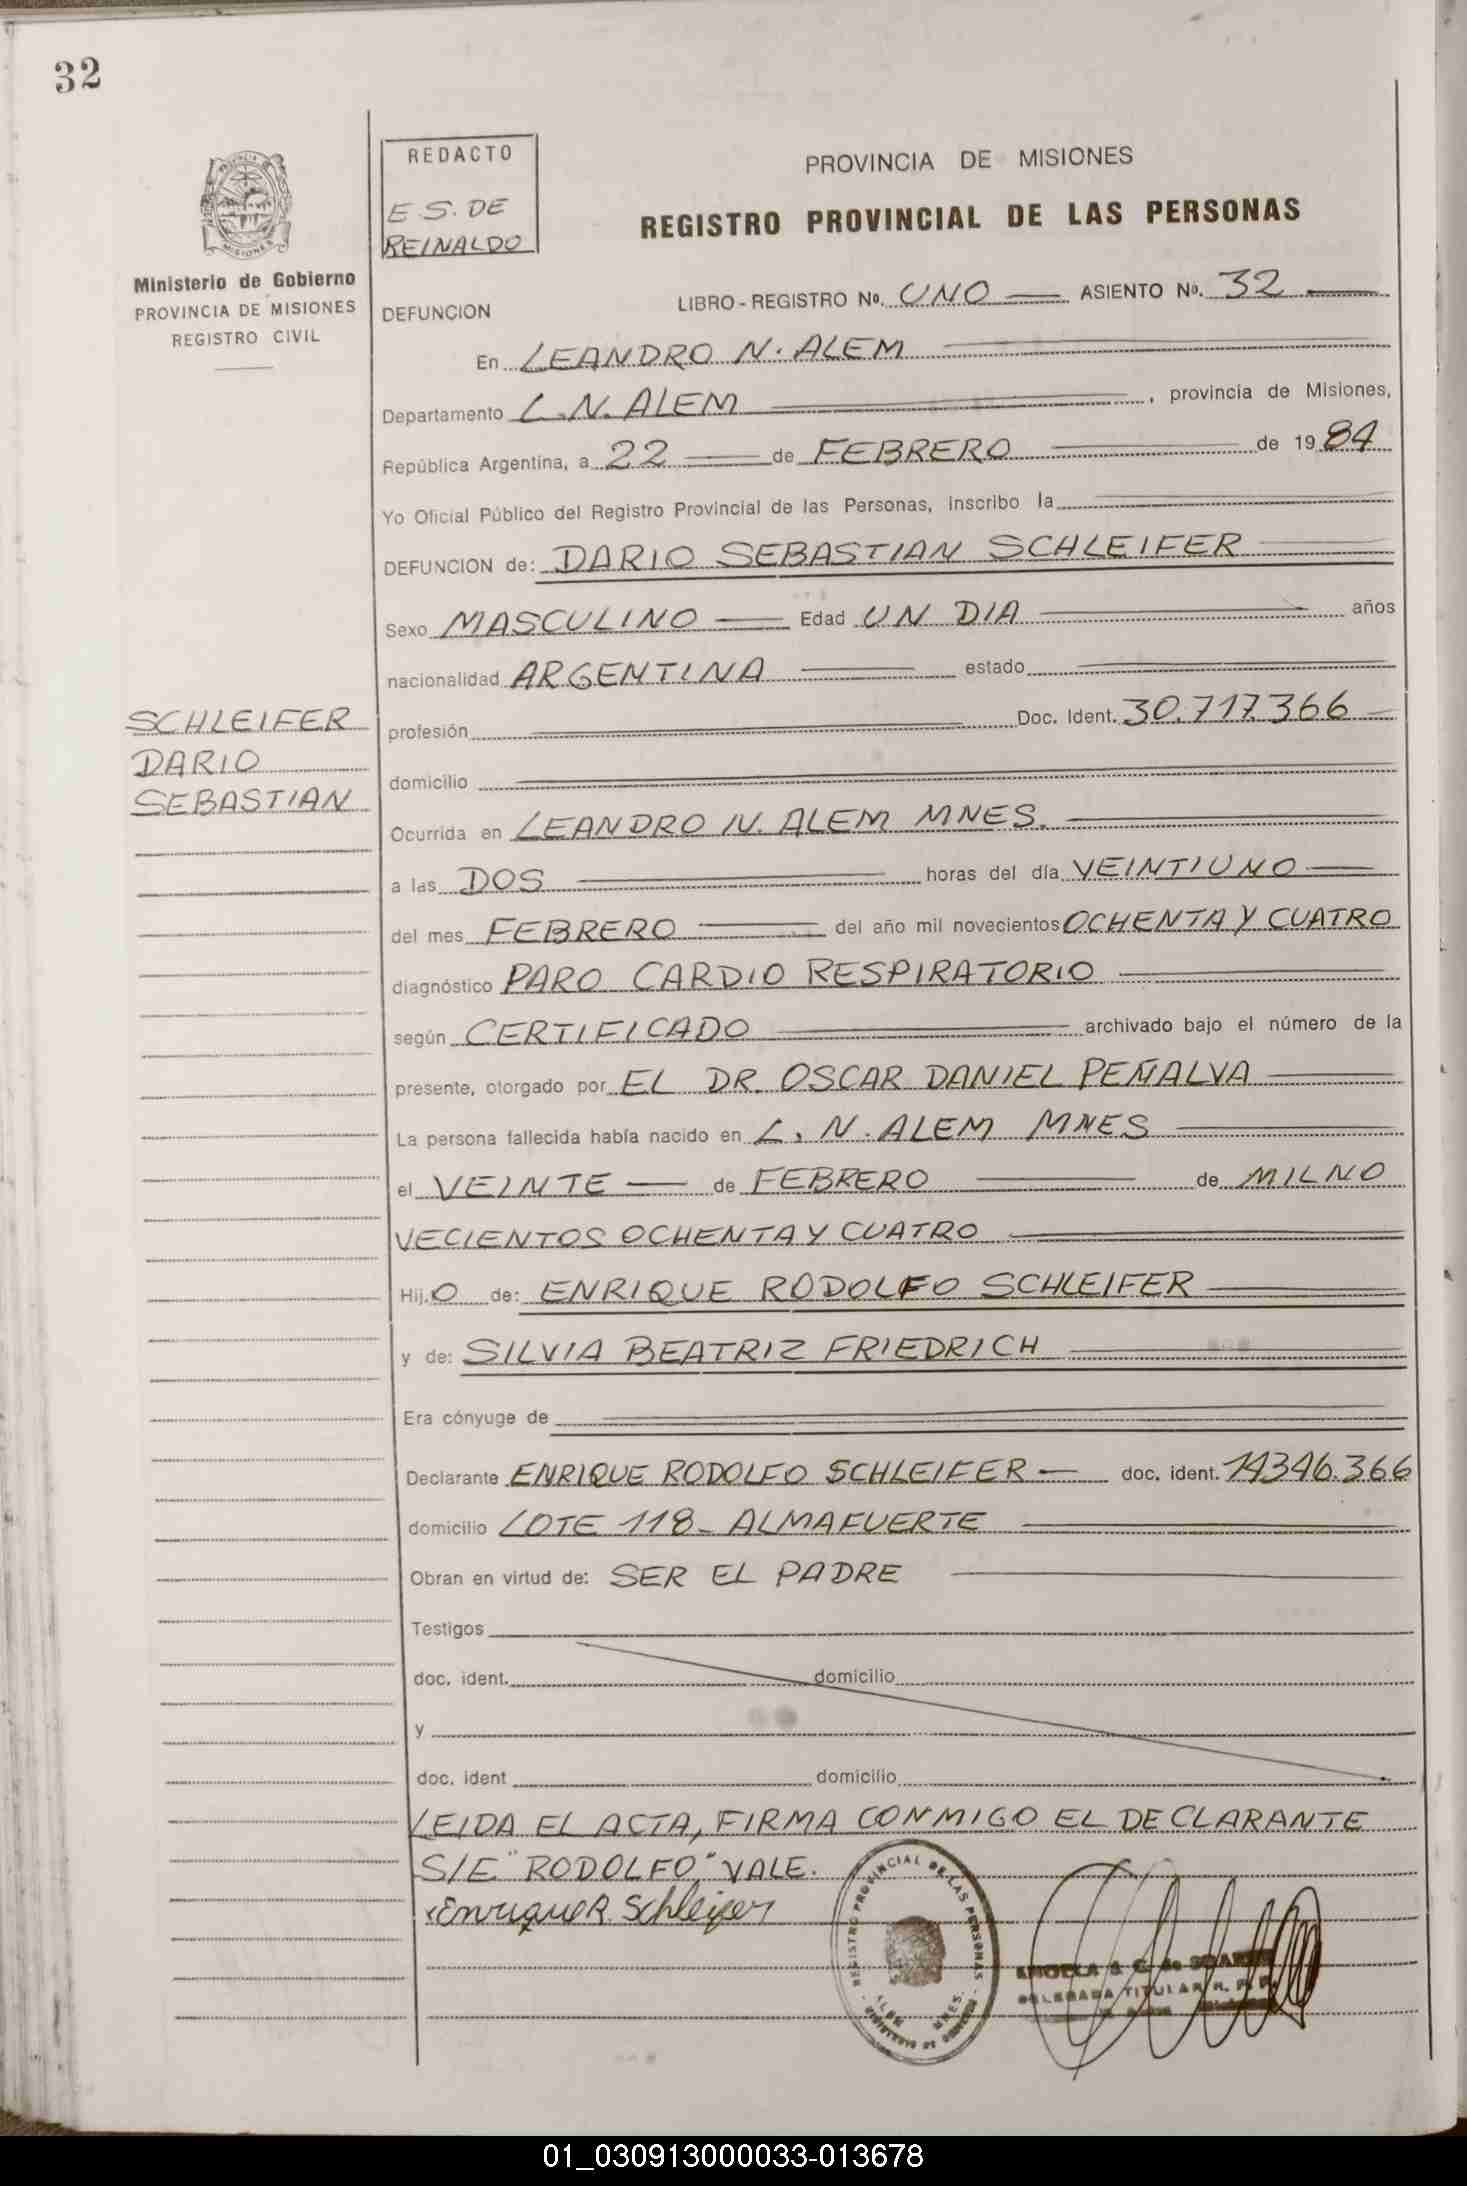 32
REDACTO
E.S. DE
REINALDO
PROVINCIA DE MISIONES
REGISTRO PROVINCIAL DE LAS PERSONAS
Ministerio de Gobierno
PROVINCIA DE MISIONES
REGISTRO CIVIL
DEFUNCION LIBRO-REGISTRO No. UNO ASIENTO No. 32
En LEANDRO N. ALEM
Departamento L.N. ALEM, provincia de Misiones,
República Argentina, a 22 de FEBRERO de 1984
Yo Oficial Público del Registro Provincial de las Personas, inscribo la
DEFUNCION de: DARIO SEBASTIAN SCHLEIFER
Sexo MASCULINO Edad UN DIA años
nacionalidad ARGENTINA estado
profesión Doc. Ident. 30.717.366
SCHLEIFER
DARIO
SEBASTIAN
domicilio
Ocurrida en LEANDRO N. ALEM MNES.
a las DOS horas del día VEINTIUNO
del mes FEBRERO del año mil novecientos OCHENTA Y CUATRO
diagnóstico PARO CARDIO RESPIRATORIO
según CERTIFICADO archivado bajo el número de la
presente, otorgado por EL DR. OSCAR DANIEL PEÑALVA
La persona fallecida había nacido en L. N. ALEM MNES
el VEINTE de FEBRERO de MILNO
VECIENTOS OCHENTA Y CUATRO
Hij.O de: ENRIQUE RODOLFO SCHLEIFER
y de: SILVIA BEATRIZ FRIEDRICH
Era cónyuge de
Declarante ENRIQUE RODOLFO SCHLEIFER doc. ident. 14346.366
domicilio LOTE 118- ALMAFUERTE
Obran en virtud de: SER EL PADRE
Testigos
doc. ident. domicilio
y
doc. ident domicilio
LEIDA EL ACTA, FIRMA CONMIGO EL DECLARANTE
S/E "RODOLFO" VALE.
Enrique R. Schleifer
REGISTRO PROVINCIAL DE LAS PERSONAS
ALEM MNES.
DELEGADA TITULAR R. P. P.
01_030913000033-013678